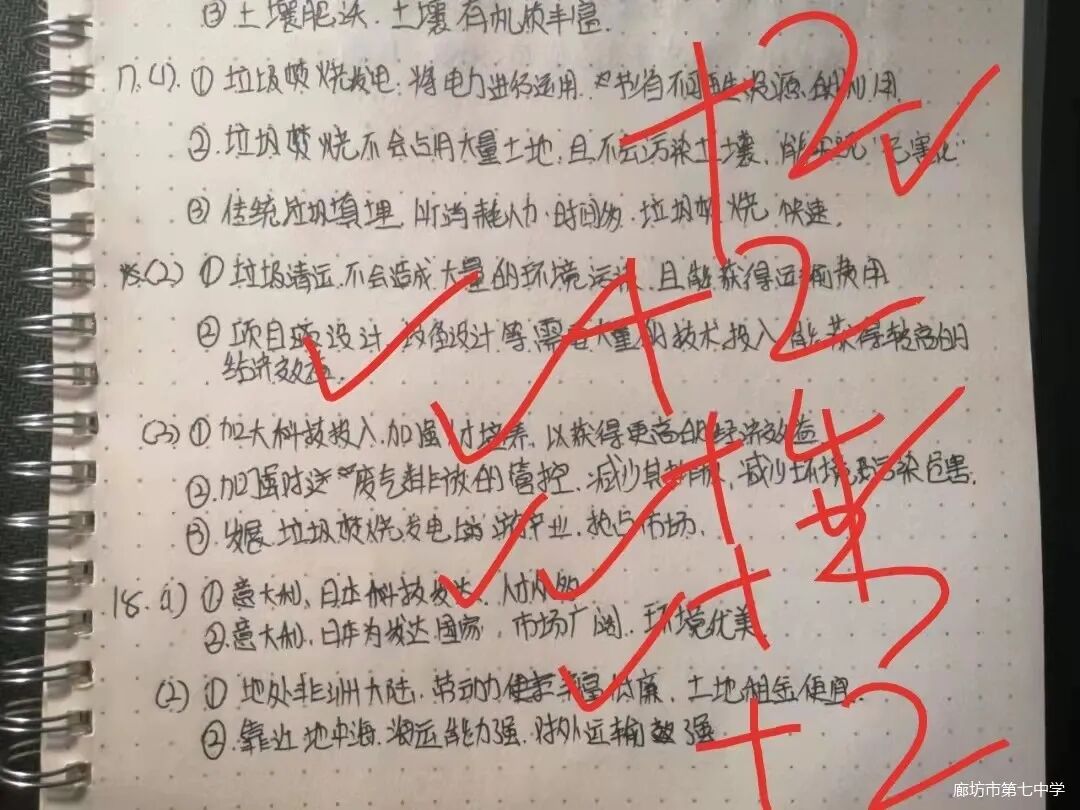 ③土壤肥沃.土壤有机质丰富.
17.(1).①垃圾焚烧发电.将电力进行运用.节省不可再生资源的利用
②.垃圾焚烧不会占用大量土地,且不会污染土壤.能实现"无害化"
③传统垃圾填埋所消耗人力.时间多.垃圾焚烧快速.
(2)①垃圾清运.不会造成大量的环境污染.且能获得运输费用
②项目设计.设备设计等需要大量的技术投入能获得较高的
经济效益.
(3)①加大科技投入,加强人才培养,以获得更高的经济效益
②.加强对废气排放的管控.减少其排放.减少环境污染危害.
③.发展垃圾焚烧发电上游产业,抢占市场.
18.(1)①意大利,日本科技发达,人才多
②意大利,日本为发达国家,市场广阔.环境优美
(2)①地处非洲大陆,劳动力丰富低廉.土地租金便宜
②.靠近地中海.海运能力强.对外运输强
+2
+2
+4
+3
+2
廊坊市第七中学